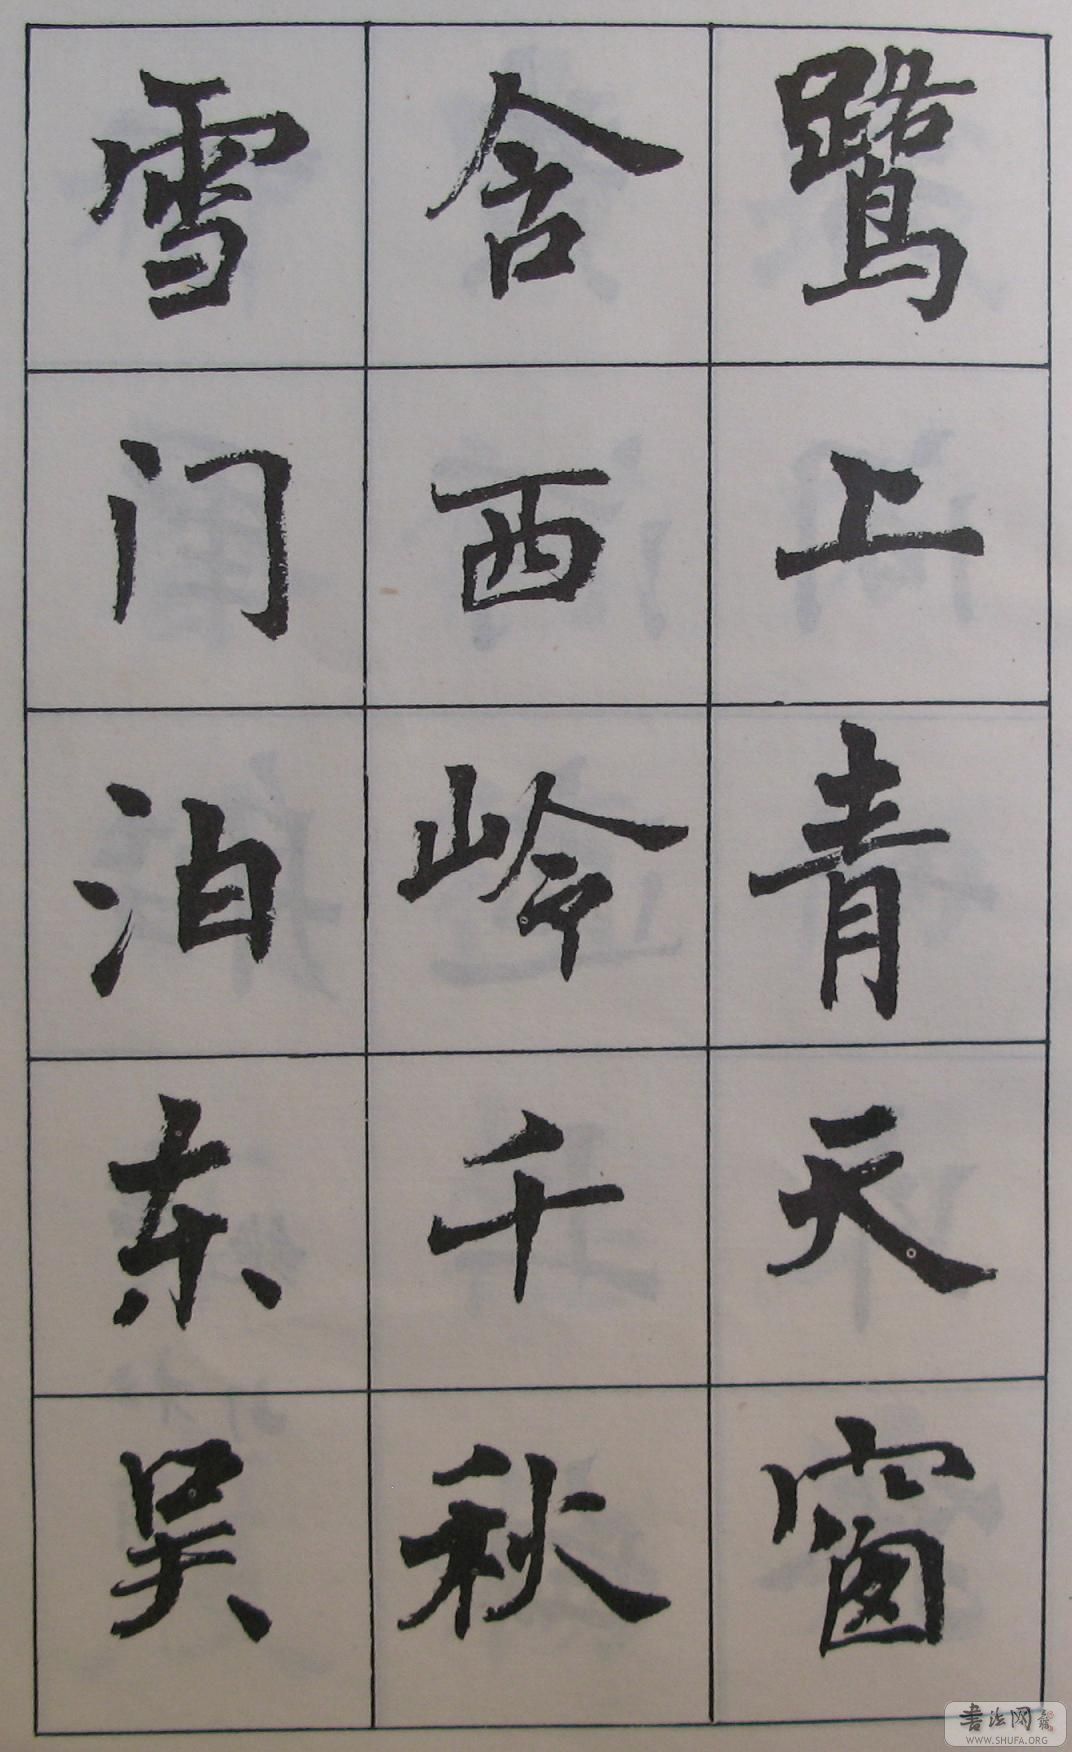 鹭上青天窗
含西岭千秋
雪门泊东吴
书法网
WWW.SHUFA.ORG